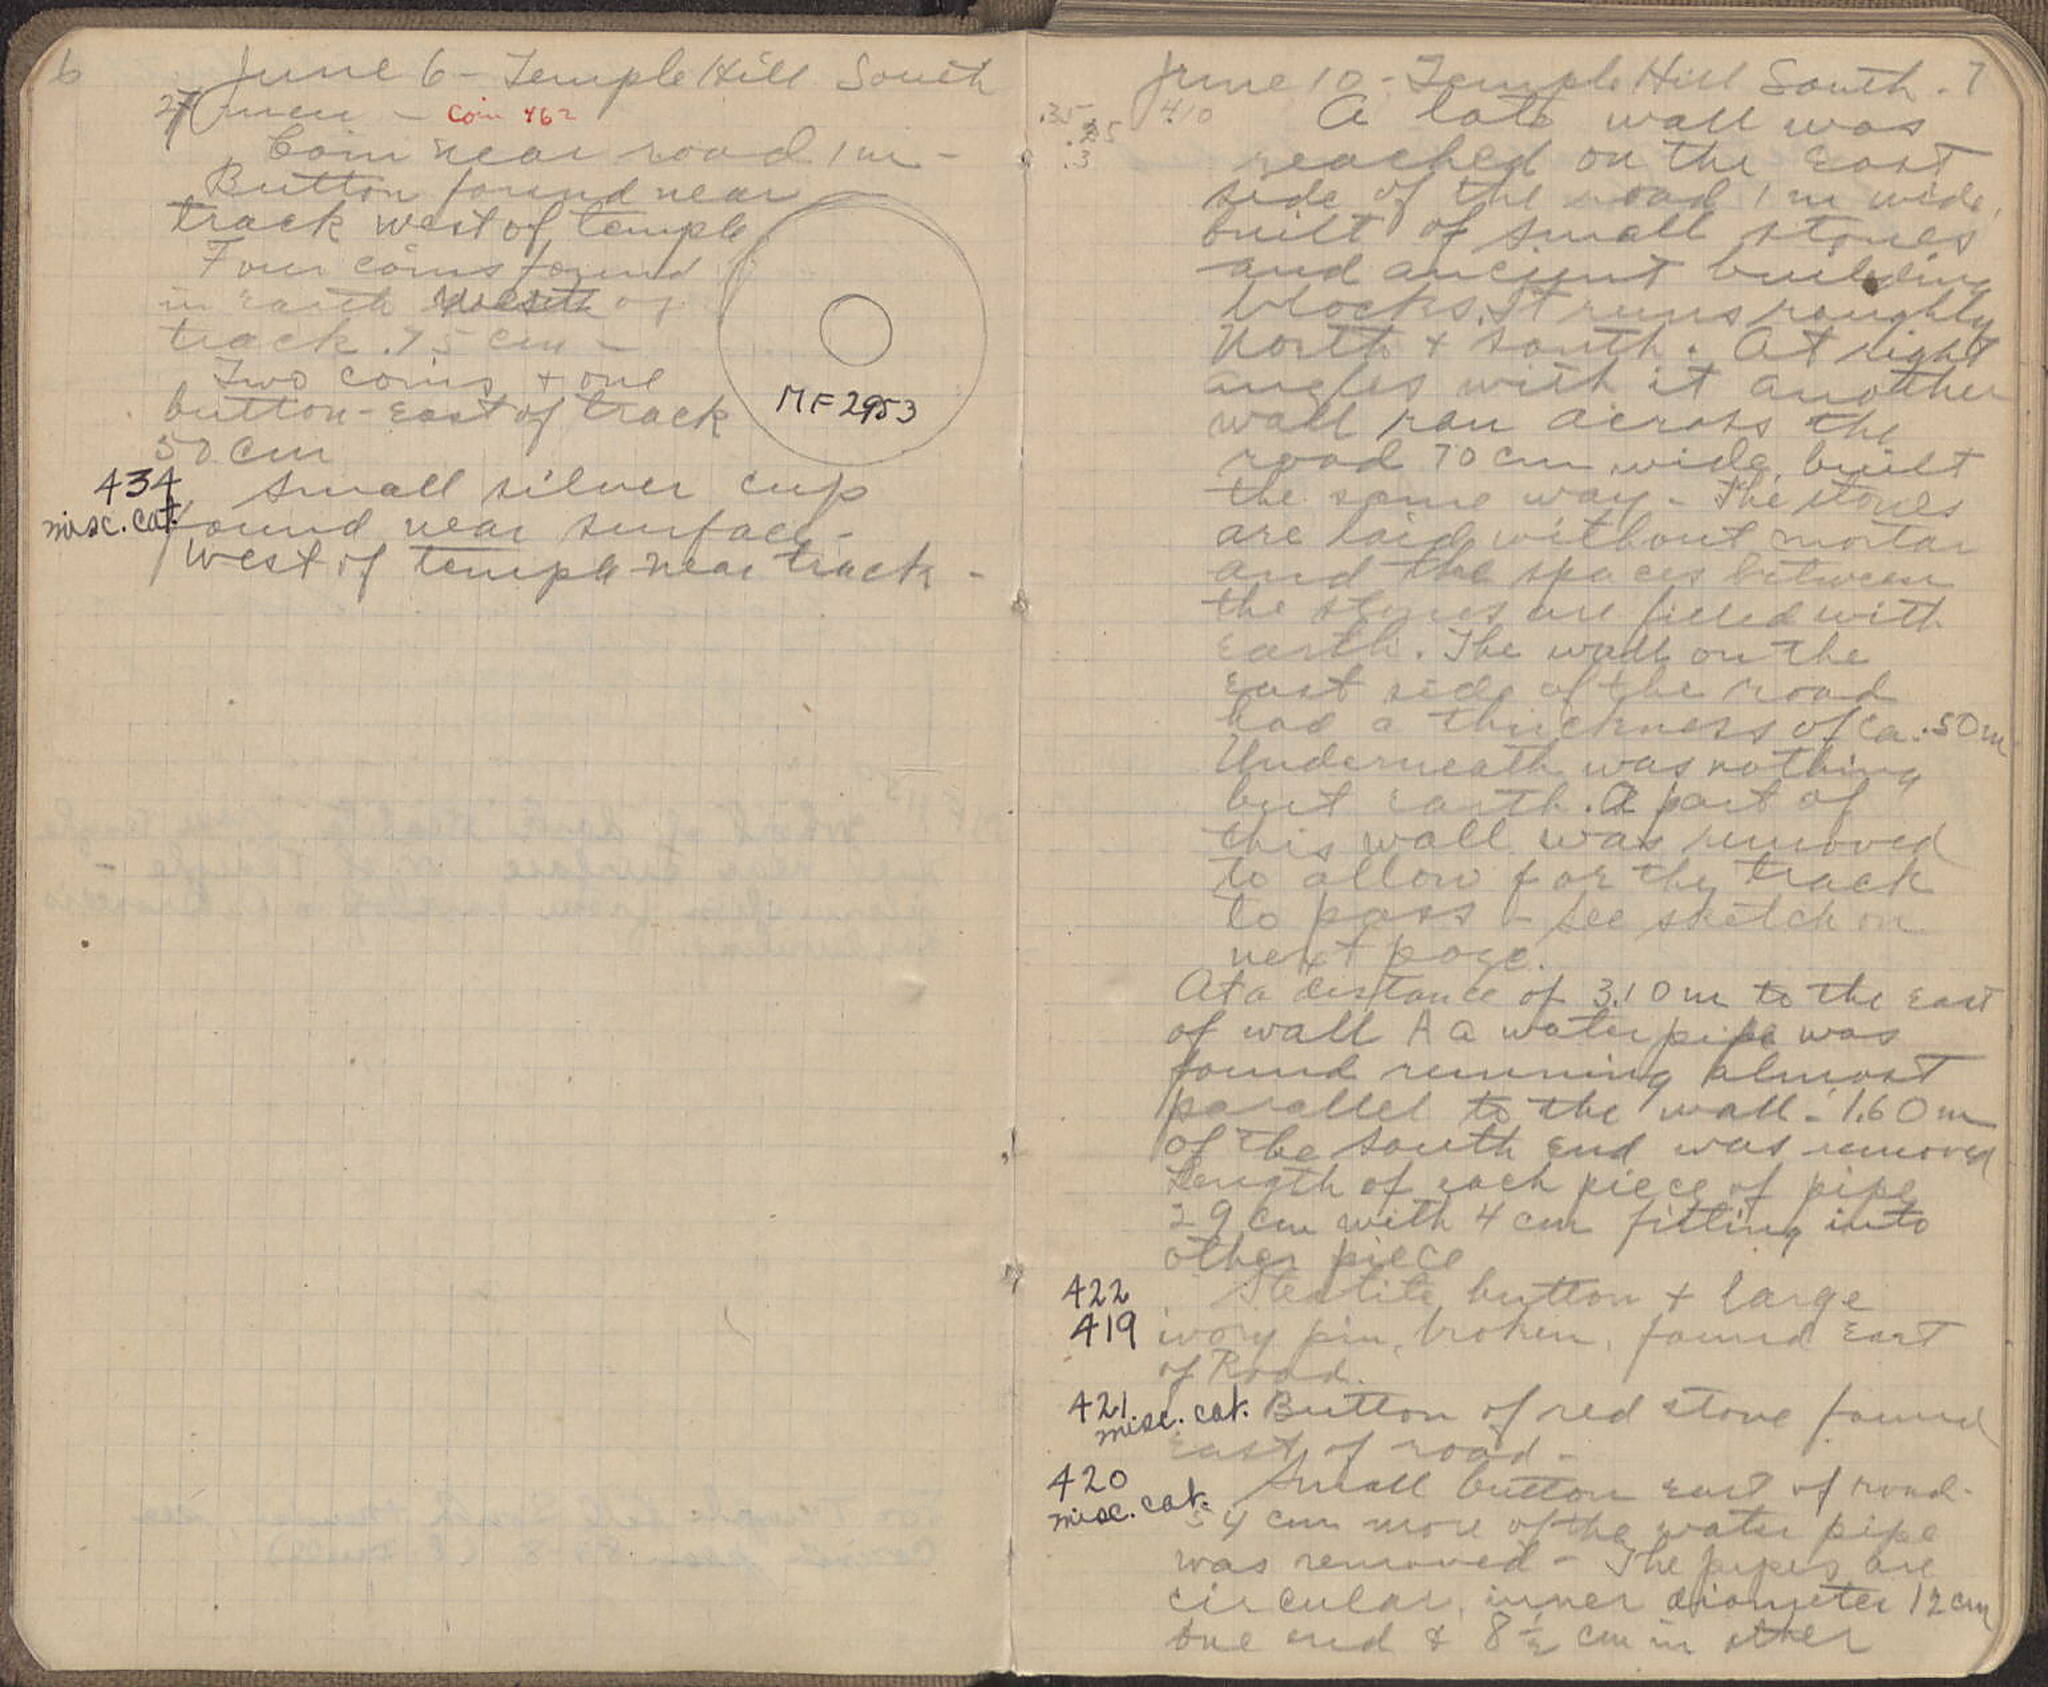 6 June 6 - Temple Hill South
27 men - Coin 462
Coin near road 1 m -
Button found near
track west of temple
Four coins found
in earth of
track .75 cm -
Two coins + one
button - East of track
50 cm
MF 2953
434 Small silver cup
misc. cat. found near surface -
west of temple near track -
June 10 - Temple Hill South. 7
.35 410 A late wall was
.3 reached on the East
side of the road 1 m wide,
built of small stones
and ancient building
blocks. It runs roughly
North + South. At right
angles with it another
wall ran across the
road 70 cm wide, built
the same way - The stones
are laid without mortar
and the spaces between
the stones are filled with
earth. The wall on the
east side of the road
had a thickness of ca. .50 m
Underneath was nothing
but earth. A part of
this wall was removed
to allow for the track
to pass - see sketch on
next page.
At a distance of 3.10 m to the East
of wall A a water pipe was
found running almost
parallel to the wall - 1.60 m
of the south end was removed
Length of each piece of pipe
29 cm with 4 cm fitting into
other piece
422 Steatite button + large
419 ivory pin, broken, found East
of Road.
421 misc. cat. Button of red stone found
East of road -
420 Small button east of road -
misc. cat. 54 cm more of the water pipe
was removed - The pipes are
circular, inner diameter 12 cm
one end & 8 ½ cm in other